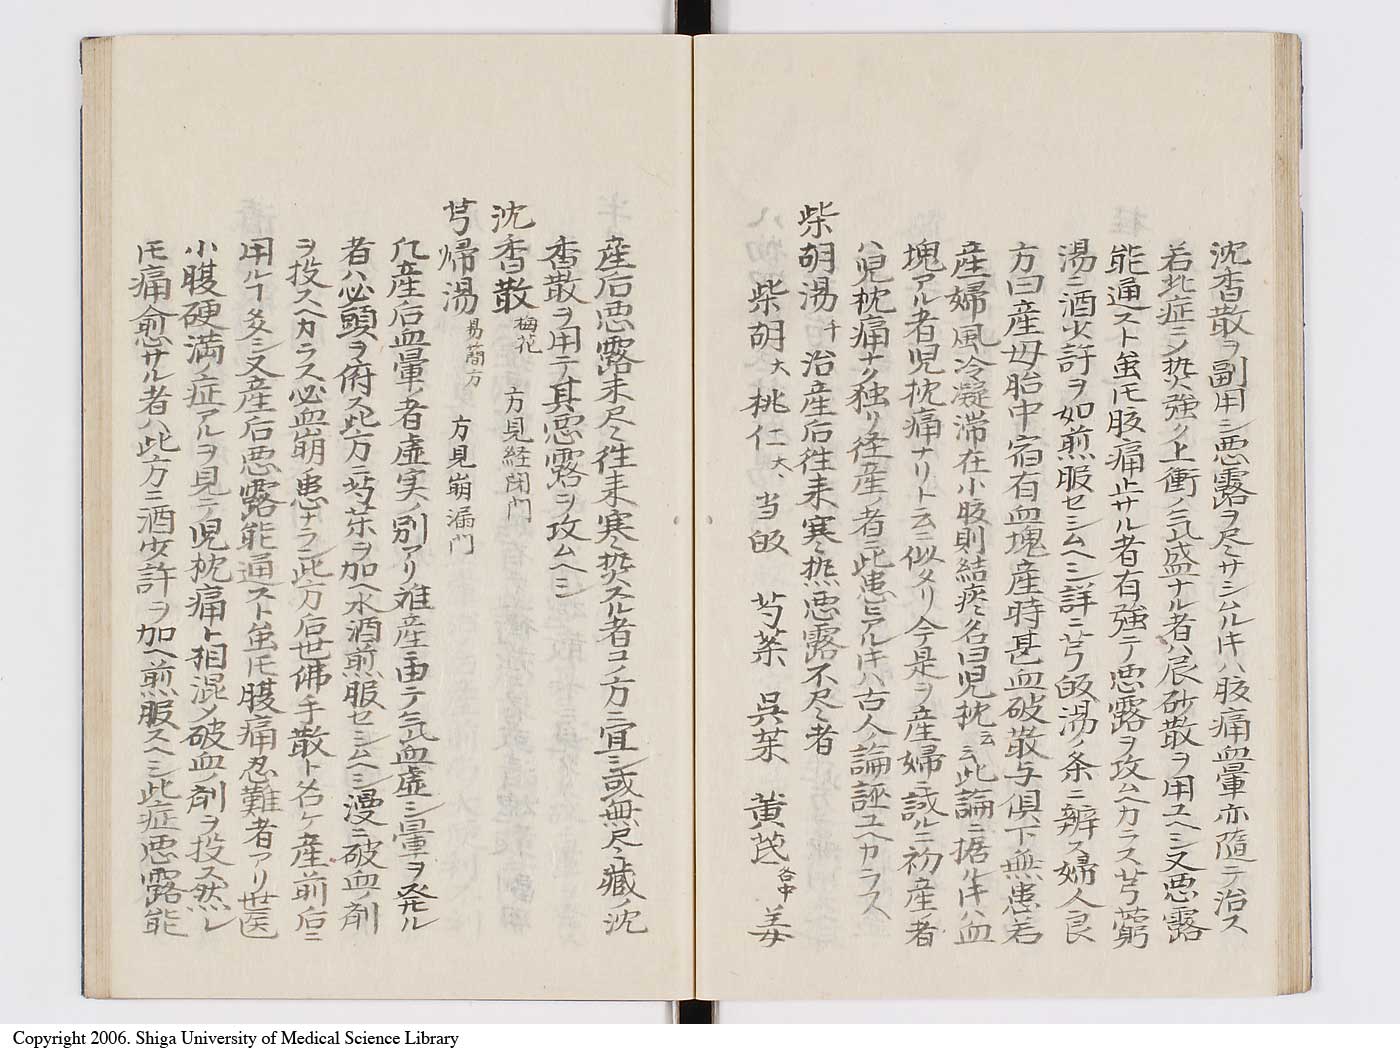 沈香散ヲ副用シ悪露ヲ尽サシムル片ハ腹痛血暈亦隨テ治ス
若此症ニシ㷱強ク上衝ノ気盛ナル者ハ辰砂散ヲ用ユヘシ又悪露
能通スト虽モ腹痛止サル者有強テ悪露ヲ攻ムヘカラス芎藭
湯ニ酒少許ヲ如煎服セシムヘシ詳ニ芎皈湯ノ条ニ辨ス婦人良
方曰産母胎中宿有血塊産時甚血破散与倶下無患若
産婦風冷凝滞在小腹則結疼名曰児枕云云此論ニ据ル片ハ血
塊アル者児枕痛ナリト云ニ似タリ今是ヲ産婦ニ試ルニ初産ノ者
ハ児枕痛ナク独リ経産ノ者此患ヒアル片ハ古人ノ論誣ユヘカラス
柴胡湯 千 治産后往来寒熱悪露不尽者
柴胡 大 桃仁 大、 当皈 芍薬 呉茱 黄芪 各中 姜
産后悪露未尽往来寒㷱スル者コノ方ニ宜シ或無尽蔵ノ沈
香散ヲ用テ其悪露ヲ攻ムヘシ
沈香散 梅花 方見経閉門
芎帰湯 易簡方 方見崩漏門
凡産后血暈ノ者虚実ノ別アリ難産ニ由テ気血虚シ暈ヲ発ル
者ハ必頭ヲ俯ス此方ニ芍薬ヲ加水酒煎服セシムヘシ漫ニ破血ノ剤
ヲ投スヘカラス必血崩ノ患ナラン此方后世佛手散ト名ケ産前后ニ
用ルヿ多シ又産后悪露能通スト虽モ腹痛忍難者アリ世医
小腹硬満ノ症アルヲ見テ児枕痛ト相混ノ破血ノ剤ヲ投ス然レ
モ痛愈サル者ハ此方ニ酒少許ヲ加ヘ煎服スヘシ此症悪露能
Copyright 2006. Shiga University of Medical Science Library